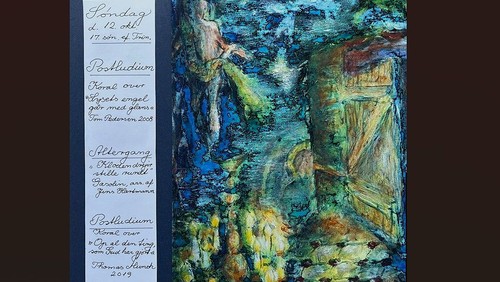 Søndag
d. 12. okt.
17. søn. ef. Trin.
Postludium
Koral over
"Lysets engel
går med glans"
Tom Pedersen 2008
Altergang
"Kloden drejer
stille rundt"
Gasolin, arr. af
Jens
Postludium
Koral over
"Op al den ting,
som Gud har gjort"
Thomas
2019